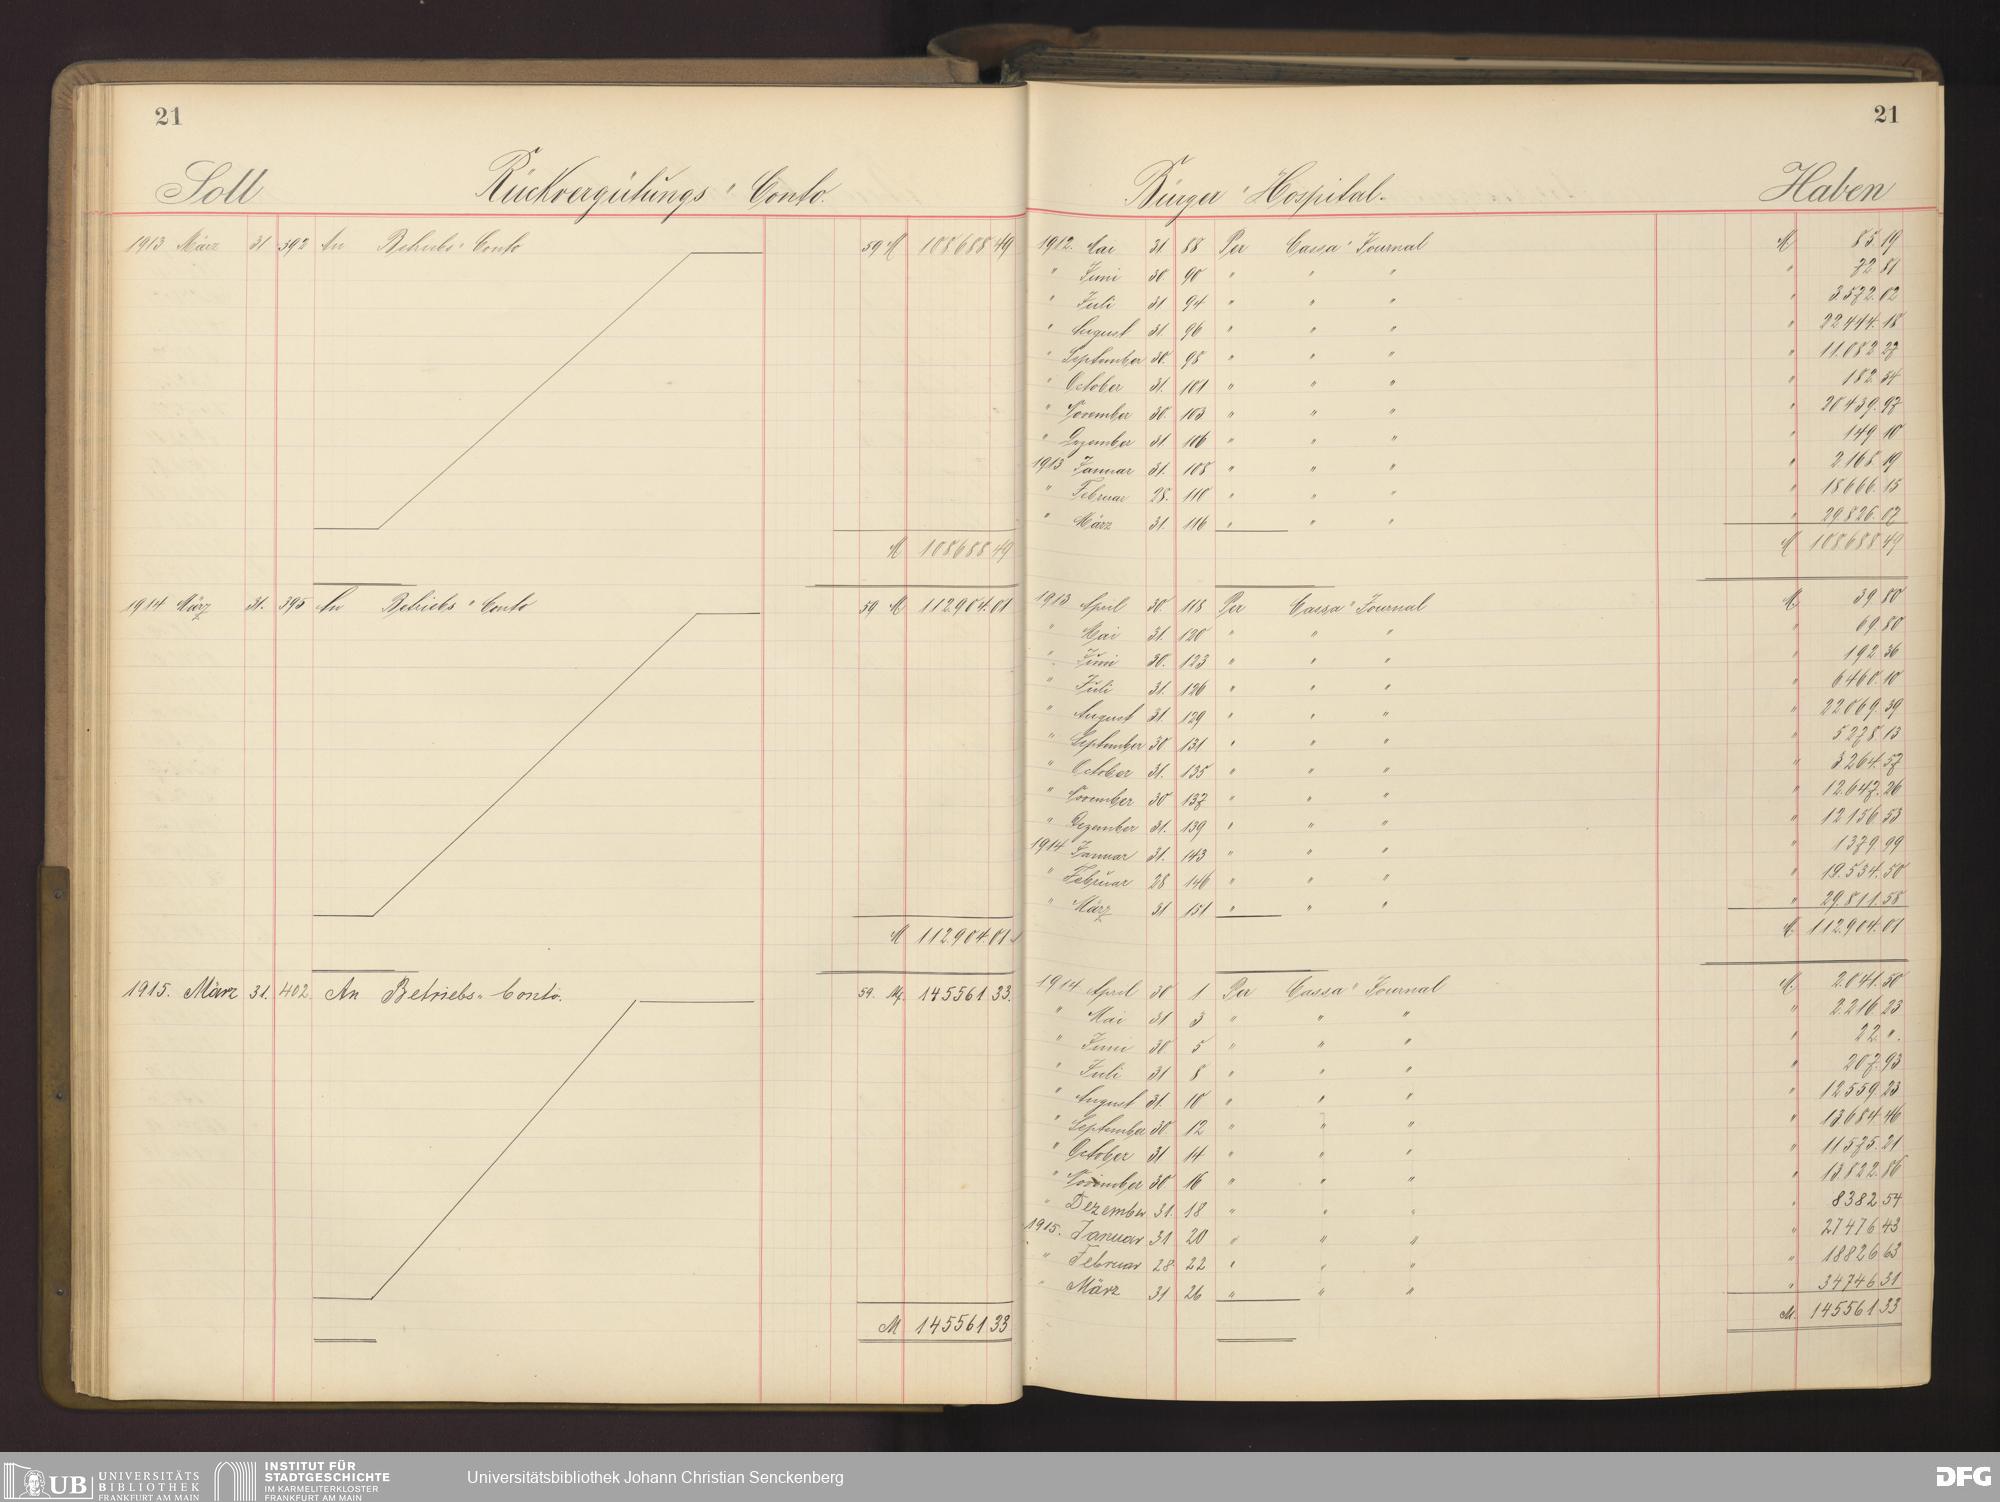 21
Soll Rückvergütungs-Conto.
1913 März 31 392 An Betriebs-Conto 59 M 108688 49
M 108688 49
1914 März 31. 395 An Betriebs-Conto 59 M 112904.01
M 112904.01
1915. März 31. 402. An Betriebs-Conto. 59. M. 145561 33.
M 145561 33
21
Bürger-Hospital. Haben
1912. Mai 31 88 Per Cassa-Journal M 85.19
" Juni 30. 90 " " " " 72 81
" Juli 31 94 " " " " 3572.02
" August 31 96 " " " " 22444.18
" September 30. 98 " " " " 11.082.27
" October 31. 101 " " " " 182.54
" November 30. 103 " " " " 20439.97
" Dezember 31 106 " " " " 149 10
1913 Januar 31. 108 " " " " 2168.19
" Februar 28. 110 " " " " 18666.15
" März 31. 116 " " " " 29.826.07
M 108688 49
1913 April 30. 118 Per Cassa-Journal M. 39 80
" Mai 31. 120 " " " " 69.80
" Juni 30. 123 " " " " 192.36
" Juli 31. 126 " " " " 6460.10
" August 31. 129 " " " " 22069.39
" September 30. 131 " " " " 5278.13
" October 31. 135 " " " " 3264.57
" November 30 137 " " " " 12.647.26
" Dezember 31. 139 " " " " 12156.53
1914 Januar 31. 143 " " " " 1379.99
" Februar 28 146 " " " " 19.534.50
" März 31 151 " " " " 29.811.58
M. 112904.01
1914 April 30 1 Per Cassa-Journal M. 2.041.50
" Mai 31 3 " " " " 2216.23
" Juni 30 5 " " " " 22 ".
" Juli 31 8 " " " " 207.93
" August 31. 10 " " " " 12559.23
" September 30 12 " " " " 13684.46
" October 31 14 " " " " 11575.21
" November 30 16 " " " " 13822.86
" Dezember 31. 18 " " " " 8382 54
1915. Januar 31 20 " " " " 27476 43
" Februar 28 22 " " " " 18826 63
" März 31 26 " " " " 34746 31
M. 145561 33
UB UNIVERSITÄTS
BIBLIOTHEK
FRANKFURT AM MAIN
INSTITUT FÜR
STADTGESCHICHTE
IM KARMELITERKLOSTER
FRANKFURT AM MAIN
Universitätsbibliothek Johann Christian Senckenberg
DFG